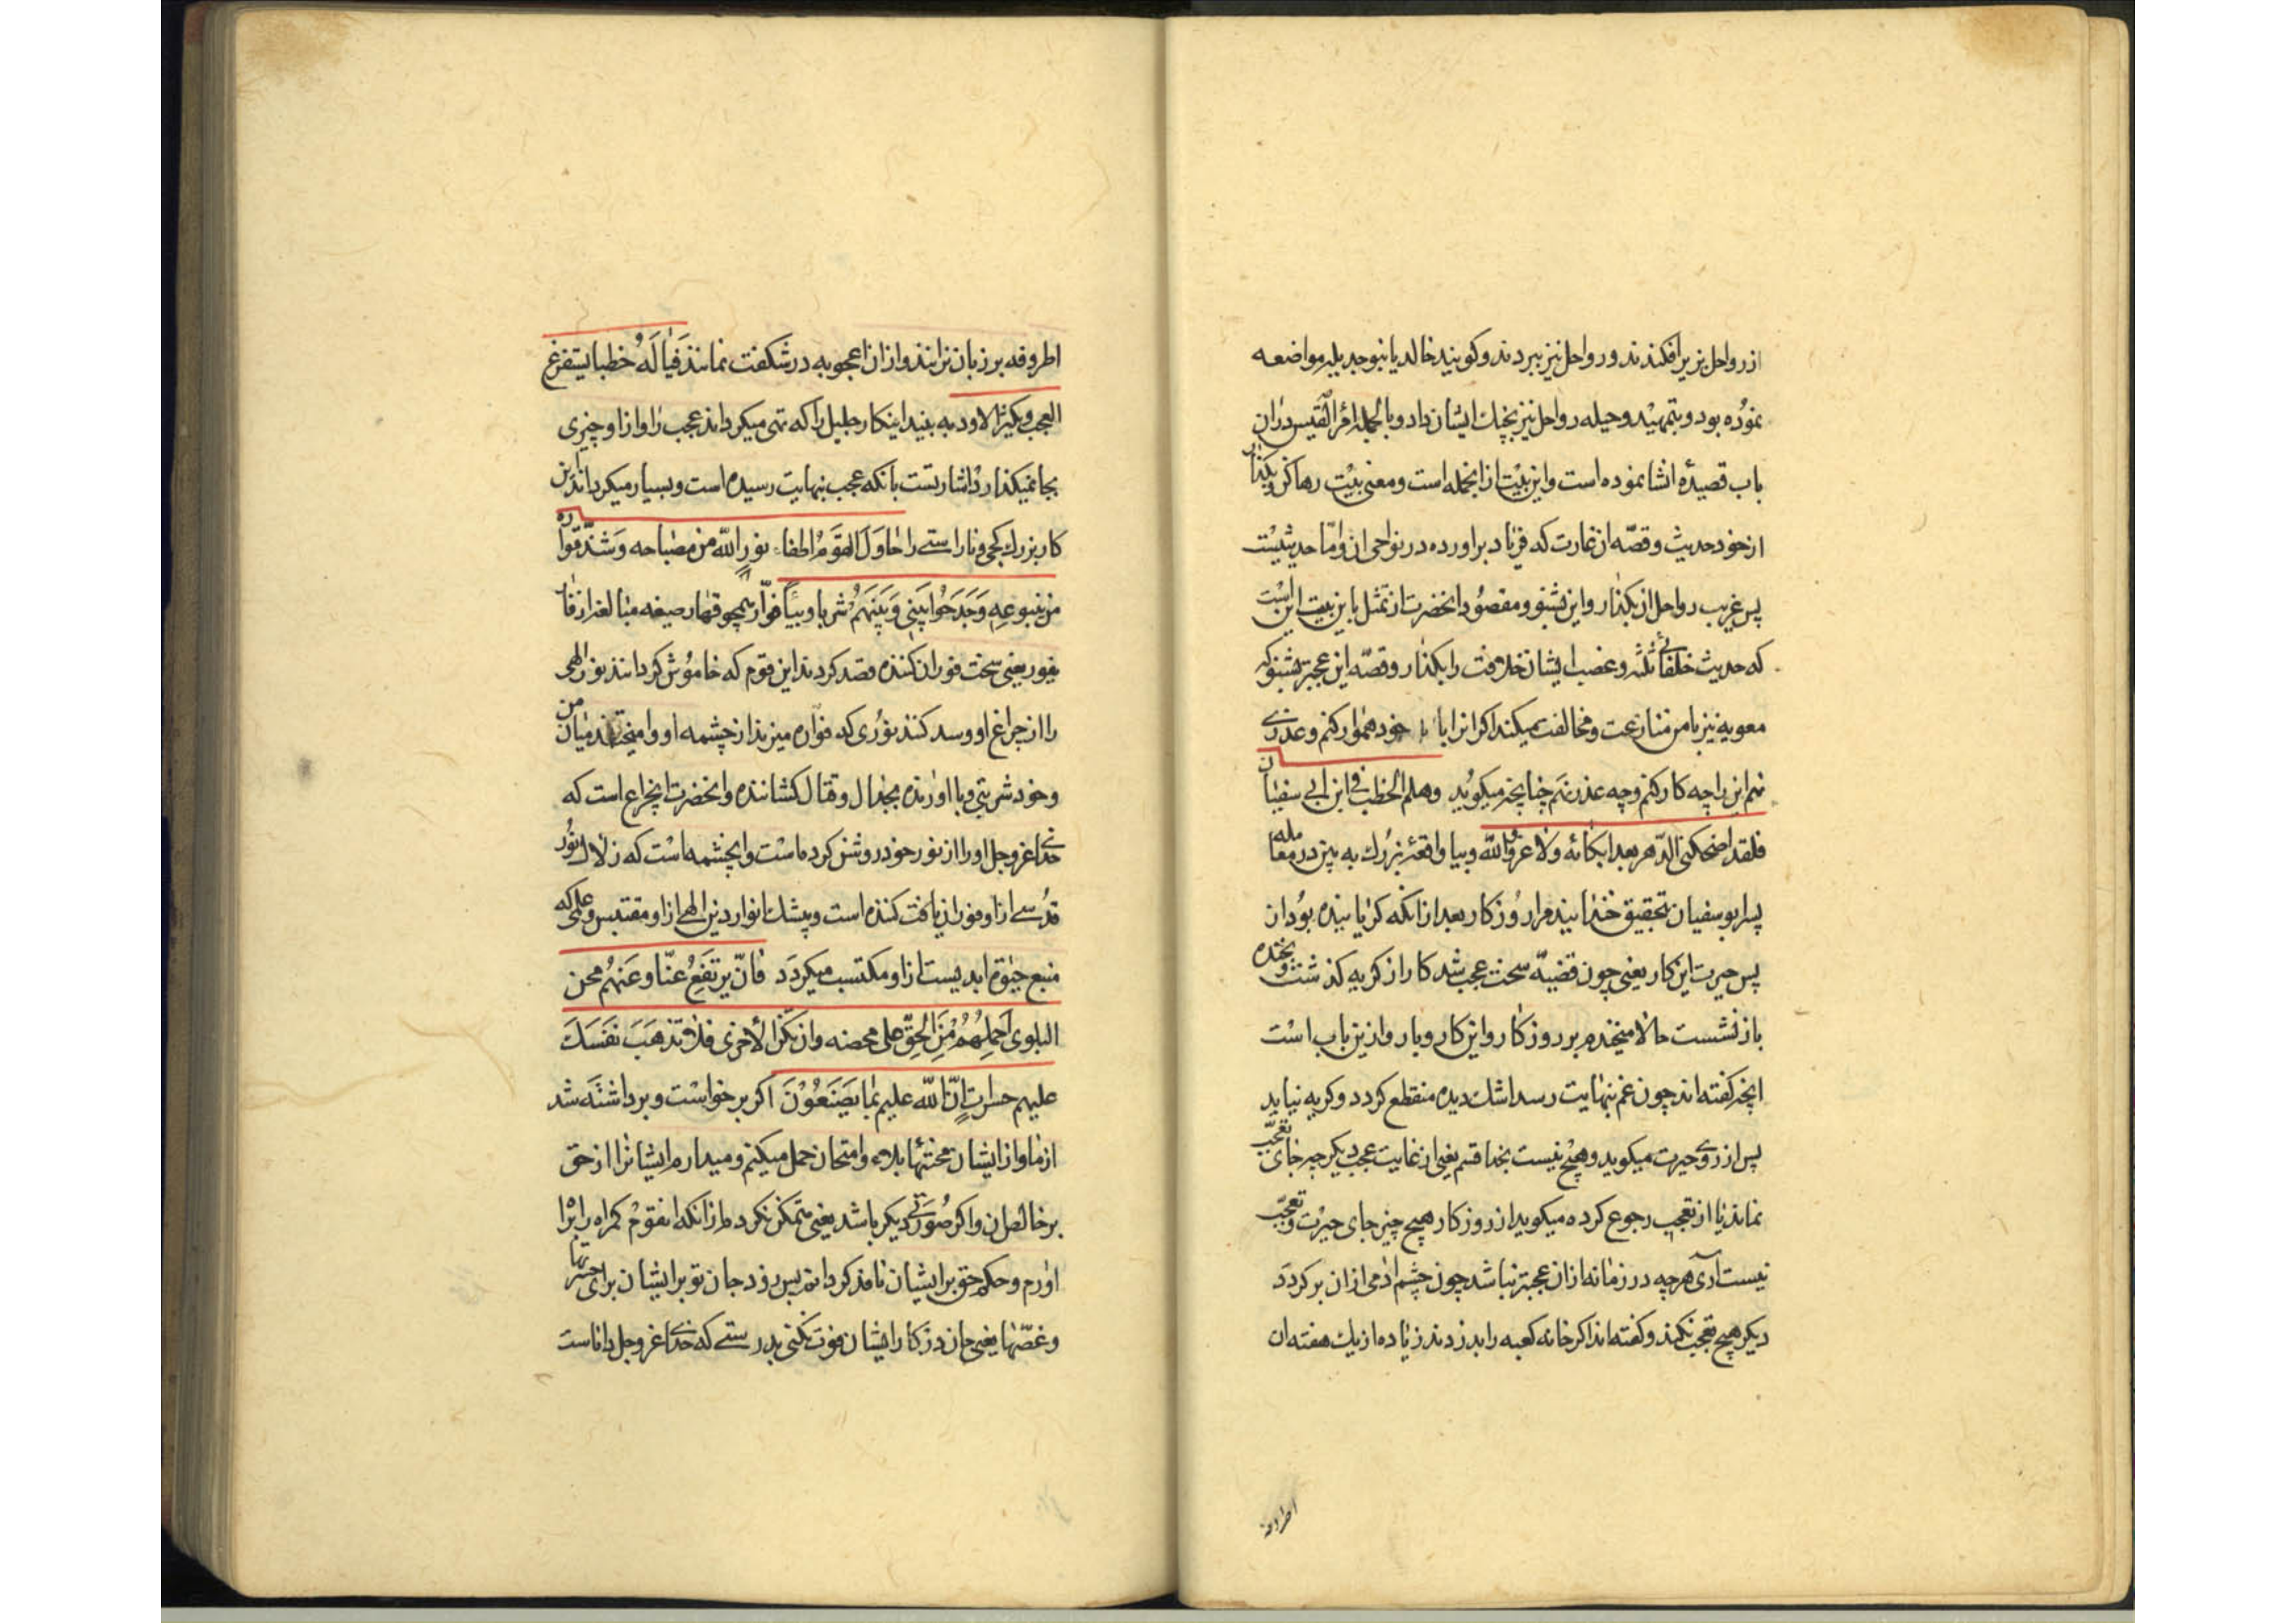 از رواحل بزیر افکندند و رواحل نیز ببردند و کویند خالد یا بنو جدیله مواضعه
نموده بود و بتمهید و حیله رواحل نیز بچنك ایشان داد و بالجمله امرؤ القیس دران
باب قصیدهٔ انشا نموده است و این بیت از انجمله است و معنی بیت رها کن و بکذار
از خود حدیث و قصّه ان غارت که فریاد براورده در نواحی ان و امّا حدیثیست
پس غریب رواحل از بکذار و این بشنو و مقصود انحضرت از تمثل باین بیت این است
که حدیث خلفائی ثلثه و غضب ایشان خلافت را بکذار و قصّه این عجبتر بشنو که
معویه نیز با من منازعت و مخالفت میکند اکر انرا با خود هموار کنم و عذری
نهم این را چه کار کنم و چه عذر نهم چنانچه میکوید وهلم الخطب فی ابن ابی سفیان
فلقد اضحکنی الدّهر بعد ابکائه ولا غرو والله و بیا واقعهٔ بزرك به بین در معامله
پسر ابو سفیان بتحقیق خندانید مرا روزکار بعد از انکه کریانیده بود ان
پس حیرت این کار یعنی چون قضیّه سخت عجب شد کار از کریه کذشت و بخنده
باز نشست حالا میخندم بر روزکار و این کار و بار و ازین باب است
انچه کفته اند چون غم بنهایت رسد اشك دیده منقطع کردد و کریه نیاید
پس از روی حیرت میکوید و هیچ نیست بخدا قسم یعنی از غایت عجب دیکر چه جای تعجّب
نماند یا از تعجب رجوع کرده میکوید از روزکار هیچ چیز جای حیرت و تعجّب
نیست آری هر چه در زمانه ازان عجبتر نباشد چون چشم ادمی ازان برکردد
دیکر هیچ تعجب نکند و کفته اند اکر خانه کعبه را بدزدند زیاده از یك هفته ان
اطروفه
اطروفه بر زبان نرانند و ازان اعجوبه در شکفت نمانند فیا له خطبا یستفرغ
العجب و یکثر الاود به بینید اینکار جلیل را که تهی میکرداند عجب را و از او چیزی
بجا نمیکذارد اشارتست بانکه عجب بنهایت رسیده است و بسیار میکرداند این
کار بزرك کجی و ناراستی را حاول القوم اطفاء نور الله من مصباحه و سدّ فواره
من ینبوعه وجدحوا بینی و بینهم شربا وبیئا فوّار همچو قهار صیغه مبالغه از فار
یفور یعنی سخت فوران کننده قصد کردند این قوم که خاموش کردانند نور الهی
را از چراغ او و سد کنند نوری که فواره میزند از چشمه او و امیختند میان من
و خود شربتی وبا اورنده بجدال و قتال کشاننده و انحضرت انچراغ است که
خدای عز و جل او را از نور خود روشن کرده است و انچشمه است که زلال نور
قدسی از او فوران یافت کننده است و بیشك انوار دین الهی از او مقتبس و علمی که
منبع حیوة ابدیست از او مکتسب میکردد فان یرتفع عنّا و عنهم محن
البلوی احملهم من الحقّ علی محضه و ان تکن الاخری فلا تذهب نفسك
علیهم حسرات انّ الله علیم بما یصنعون اکر برخواست و برداشته شد
از ما و از ایشان محنتهای بلاء و امتحان حمل میکنم و میدارم ایشانرا از حق
بر خالص ان و اکر صورتی دیکر باشد یعنی متمکن نکرده ام از انکه انقوم کمراه را براه
اورم و حکم حق بر ایشان نافذ کردانم پس نرود جان تو بر ایشان برای حسرتها
و غصّها یعنی جان در کار ایشان فوت نکنی بدرستی که خدای عز و جل داناست